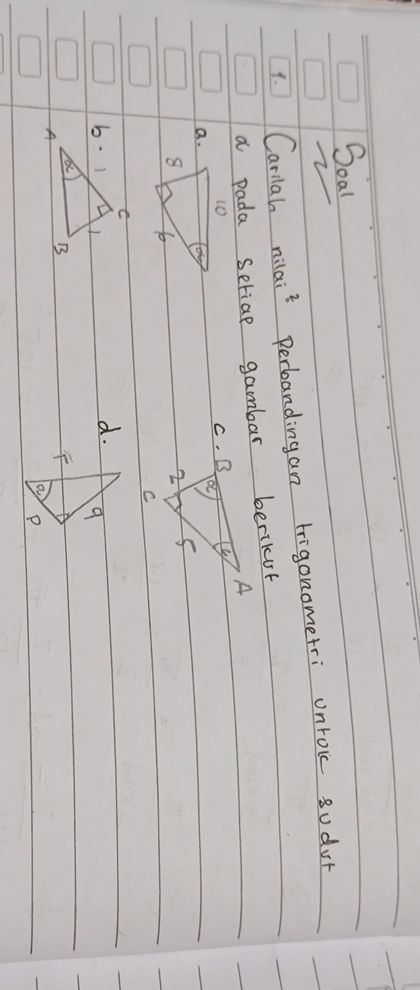 Soal
1. Carilah nilai² Perbandingan trigonometri untuk sudut
α pada setiap gambar berikut
a. 10 α 8 6
c. B α A 2 5 C
b. 1 C 1 A α B
d. q α P